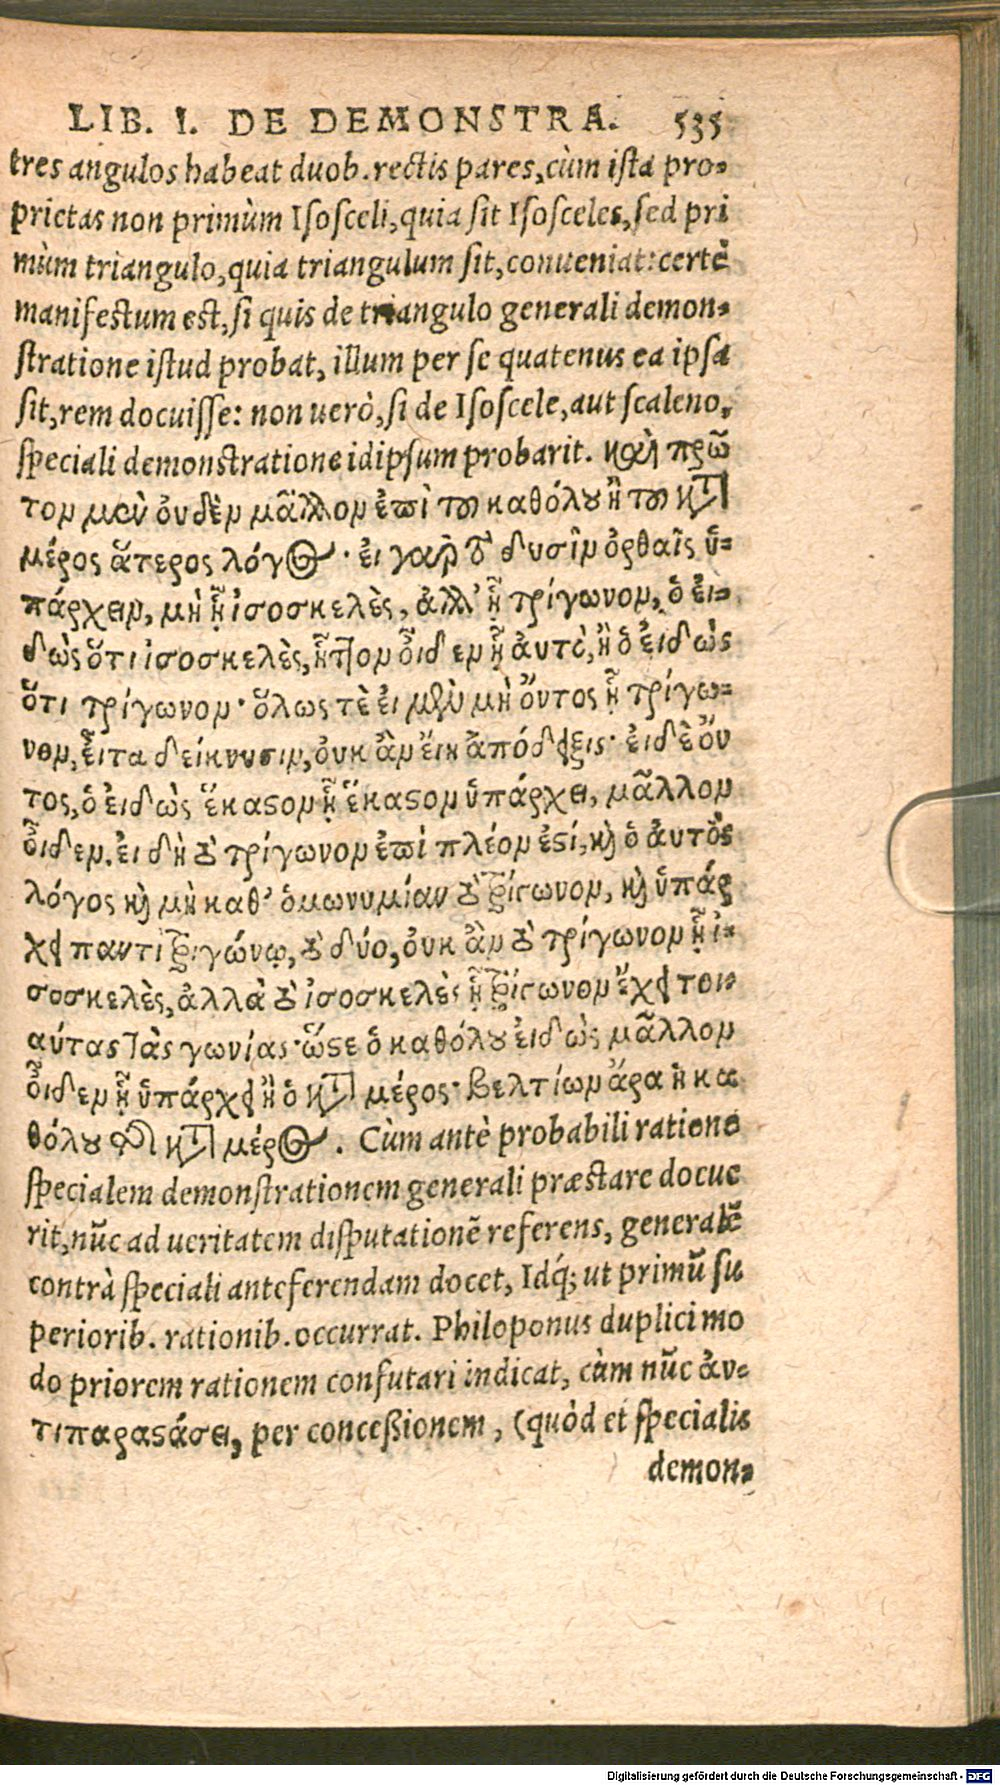 LIB. I. DE DEMONSTRA. 535
tres angulos habeat duob. rectis pares, cùm ista pro-
prietas non primùm Isosceli, quia sit Isosceles, sed pri
mùm triangulo, quia triangulum sit, conueniat: certè
manifestum est, si quis de triangulo generali demon-
stratione istud probat, illum per se quatenus ea ipsa
sit, rem docuisse: non uerò, si de Isoscele, aut scaleno,
speciali demonstratione idipsum probarit. καὶ πρῶ
τομ μὲν οὐδὲμ μᾶλλομ ἐπὶ τȣ καθόλȣ ἢ τȣ κτ̀
μέρος ἅτερος λόγος· εἰ γαρ τὸ δυσὶμ ὀρθαῖς ὑ-
πάρχειμ, μὴ ᾗ ἰσοσκελὲς, ἀλλ' ᾗ τρίγωνομ, ὁ εἰ-
δὼς ὅτι ἰσοσκελὲς, ἧττομ οἶδεμ ᾗ ἀυτὸ, ἢ ὁ εἰδὼς
ὅτι τρίγωνομ· ὅλως τὲ εἰ μὲν μὴ ὄντος ᾗ τρίγω-
νομ, εἶτα δείκνυσιμ, ὀυκ ἂμ ἔιη ἀπόδειξις· εἰ δὲ ὄν
τος, ὁ εἰδὼς ἕκαϛομ ᾗ ἕκαϛομ ὑπάρχει, μᾶλλομ
οἶδεμ. εἰ δὴ τὸ τρίγωνομ ἐπὶ πλέομ ἐϛί, κὴ ὁ ἀυτὸς
λόγος κὴ μὴ καθ' ὁμωνυμίαν τὸ τρίγωνομ, κὴ ὑπάρ
χει παντὶ τριγώνῳ, τὸ δύο, ὀυκ ἂμ τὸ τρίγωνομ ᾗ ἰ-
σοσκελὲς, ἀλλὰ τὸ ἰσοσκελὲς ᾗ τρίγωνομ ἔχει τοι-
αύτας τὰς γωνίας· ὥϛε ὁ καθόλȣ εἰδὼς μᾶλλομ
οἶδεμ ᾗ ὑπάρχει ἢ ὁ κτ̀ μέρος· βελτίωμ ἄρα ἡ κα
θόλȣ τῆς κτ̀ μέρος. Cùm antè probabili ratione
specialem demonstrationem generali præstare docue
rit, nũc ad ueritatem disputationẽ referens, generalẽ
contrà speciali anteferendam docet, Idq́; ut primũ su
periorib. rationib. occurrat. Philoponus duplici mo
do priorem rationem confutari indicat, cùm nũc ἀν-
τιπαραϛάσει, per conceßionem, (quòd et specialis
demon-
Digitalisierung gefördert durch die Deutsche Forschungsgemeinschaft - DFG